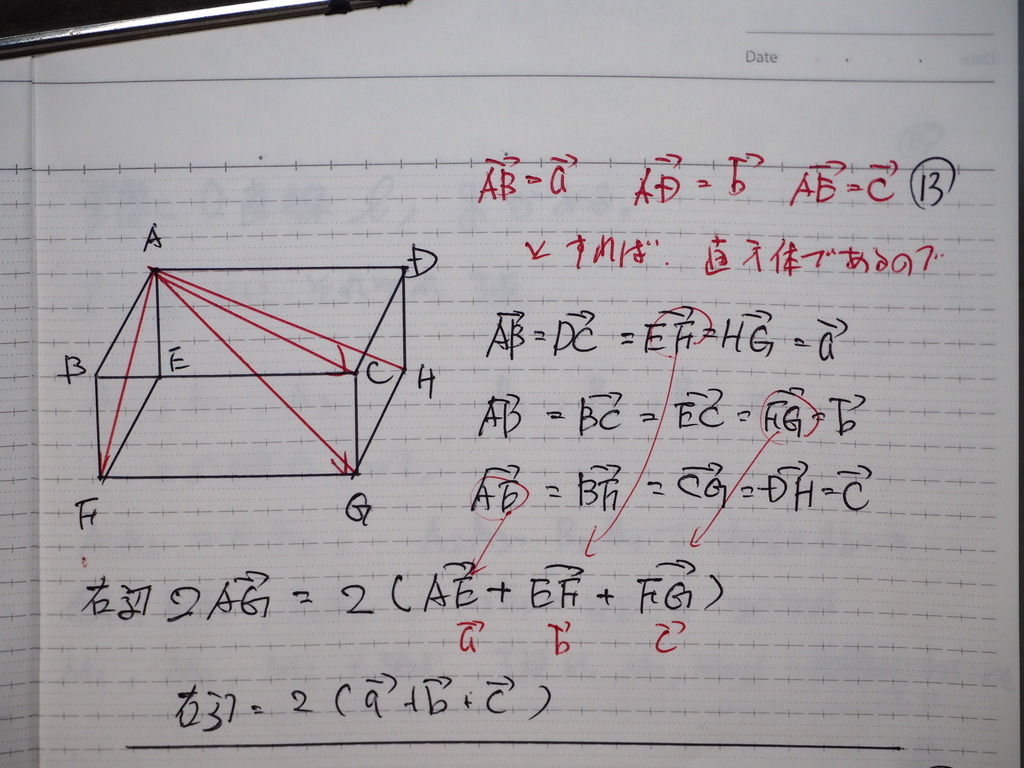 Date
AB→ = a→ AD→ = b→ AE→ = c→ ⑬
とすれば. 直方体であるので
A
D
AB→ = DC→ = EF→ = HG→ = a→
B E C H
AB→ = BC→ = EC→ = FG→ = b→
AE→ = BF→ = CG→ = DH→ = c→
F G
右辺 2AG→ = 2 ( AE→ + EF→ + FG→ )
a→ b→ c→
右辺 = 2 ( a→ + b→ + c→ )